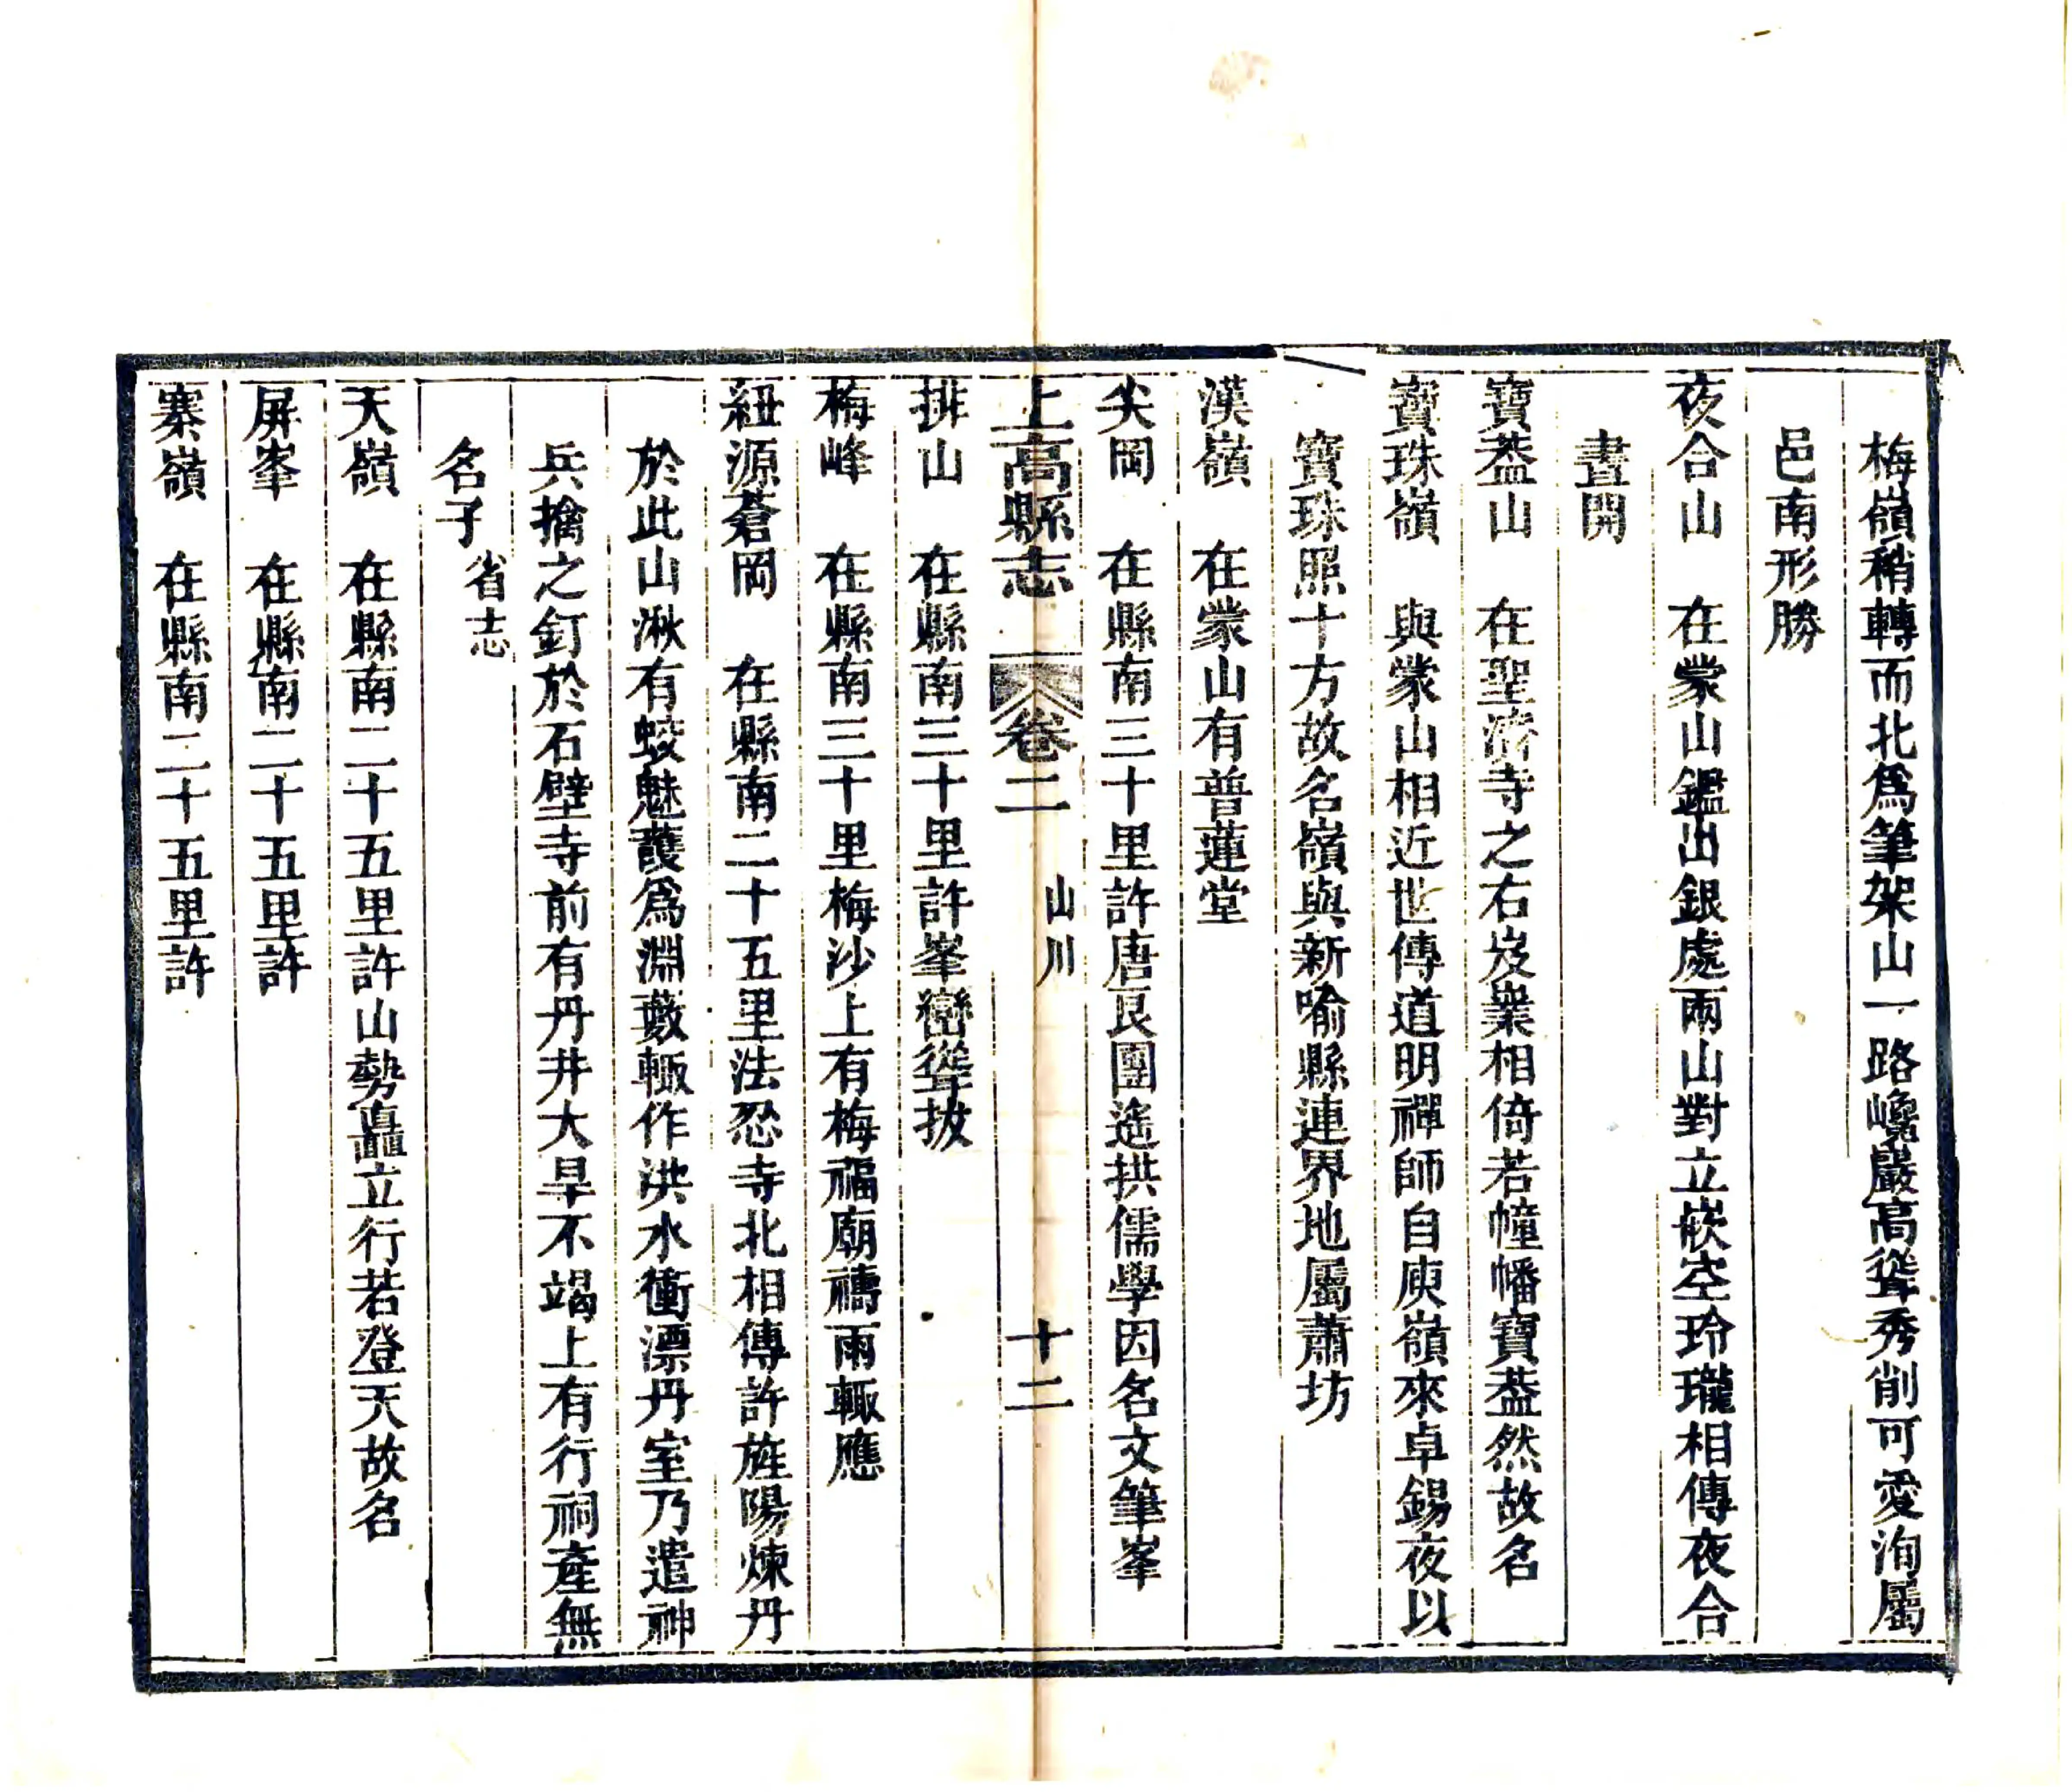 梅嶺稍轉而北爲筆架山一路巉巖高聳秀削可愛洵屬
邑南形勝
夜合山　在蒙山鑑出銀處兩山對立嵌空玲瓏相傳夜合
晝開
寶葢山　在聖濟寺之右岌嶪相倚若幢幡寶葢然故名
寶珠嶺　與蒙山相近世傳道明禪師自庾嶺來卓錫夜以
寶珠照十方故名嶺與新喻縣連界地屬蕭坊
漢嶺　在蒙山有普蓮堂
尖岡　在縣南三十里許唐艮團遙拱儒學因名文筆峯
上高縣志　卷二　山川　十二
排山　在縣南三十里許峯巒聳拔
梅峰　在縣南三十里梅沙上有梅福廟禱雨輒應
紐源蒼岡　在縣南二十五里法忍寺北相傳許旌陽煉丹
於此山湫有蛟魅護爲淵藪輒作洪水衝漂丹室乃遣神
兵擒之釘於石壁寺前有丹井大旱不竭上有行祠產無
名子省志
天嶺　在縣南二十五里許山勢矗立行若登天故名
屏峯　在縣南二十五里許
寨嶺　在縣南二十五里許